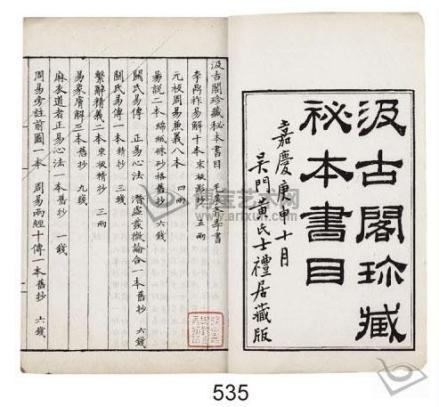 汲古閣珍藏
祕本書目
嘉慶庚申十月
吳門黃氏士禮居藏版
汲古閣珍藏秘本書目 毛扆斧季書
李鼎祚易解十本宋板影抄 五兩
元板周易兼義八本 四兩
易說二本綿紙硃砂格舊抄 六錢
關氏易傳 正易心法 潛虛發微論合一本舊抄 六錢
關氏易傳一本精抄 三錢
繫辭精義二本宋板精抄 三兩
易象膚解三本舊抄 九錢
麻衣道者正易心法一本舊抄 一錢
周易旁註前圖一本 周易兩經十傳一本舊抄 六錢
535